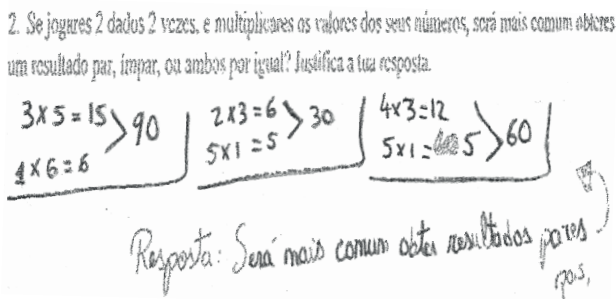 2. Se jogares 2 dados 2 vezes, e multiplicares os valores dos seus números, será mais comum obteres
um resultado par, ímpar, ou ambos por igual? Justifica a tua resposta.
3x5=15 > 90 2x3=6 > 30 4x3=12 > 60
1x6=6 5x1=5 5x1=5
Resposta: Será mais comum obter resultados pares
pois,